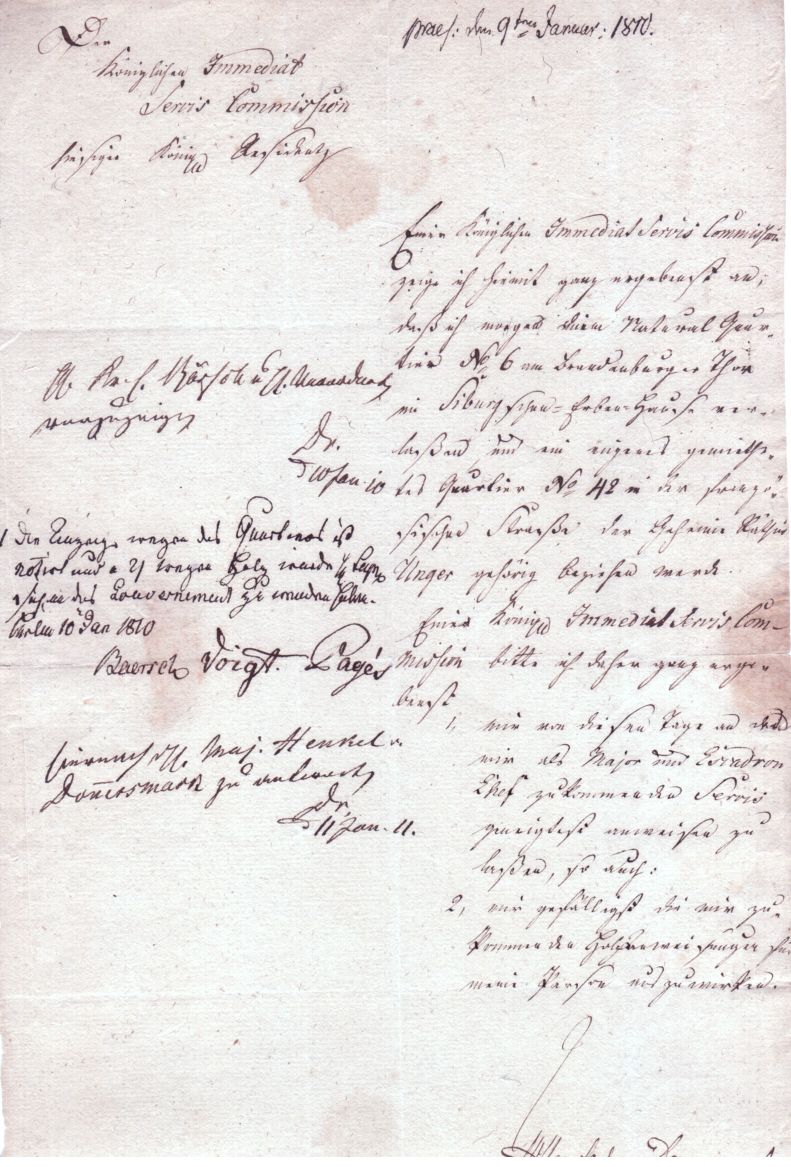 praes: den 9ten Januar: 1810.
Der
Königlichen Immediat
Servis Commission
hiesiger Königl Residentz
Einer Königlichen Immediat Servis Commission
zeige ich hiermit ganz ergebenst an,
daß ich morgen mein Natural Quar-
tier No 6 am Brandenburger Thor
im schen-Erben-Hause ver-
laßen und ein eigenes gemiethe-
tes Quartier No 42 in der franzö-
sischen Straße der Geheime Räthin
Unger gehörig beziehen werde.
Einer Königl Immediat Servis Com-
mission bitte ich daher ganz erge-
benst
1, mir von diesen Tage an den
mir als Major und Escadron
Chef zukommenden Servis
geneigtest anweisen zu
laßen, so auch:
2, mir gefälligst die mir zu-
kommenden Holzanweisungen für
meine Person auszuwirken.
H.
vorzuzeigen
Dr.
10 Jan. 10
1 Die Anzeige wegen des Quartiers ist
notirt und 2) wegen Holz wurde
sich an das Gouvernement zu wenden haben.
Berlin 10 Jan 1810
Baersch Voigt. Pagés
Hiernach H. Maj. Henkel v.
Donnersmark zu antworten
Dr.
11 Jan. 11.